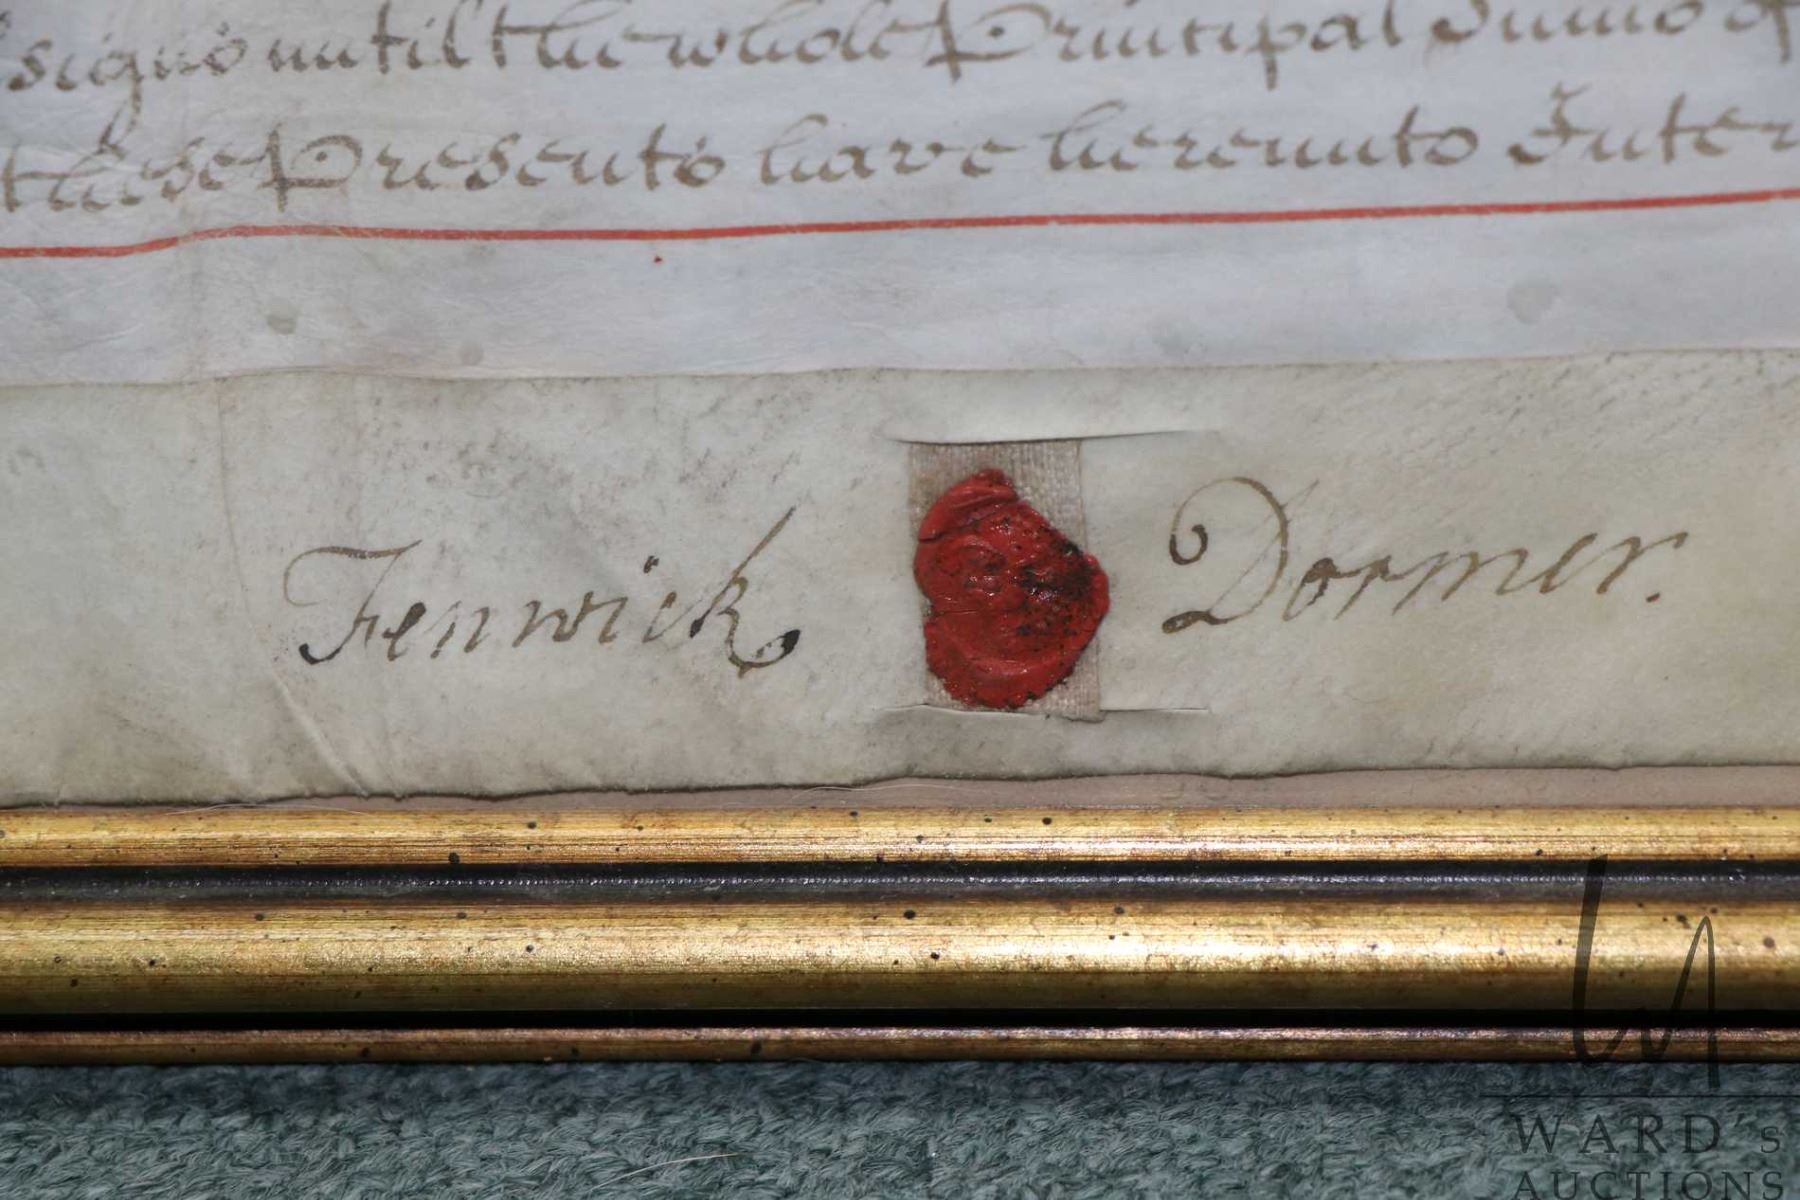 signs until the whole Principal Sums of
these Presents have hereunto Inter
Fenwick Dormer.
WARD's
AUCTIONS